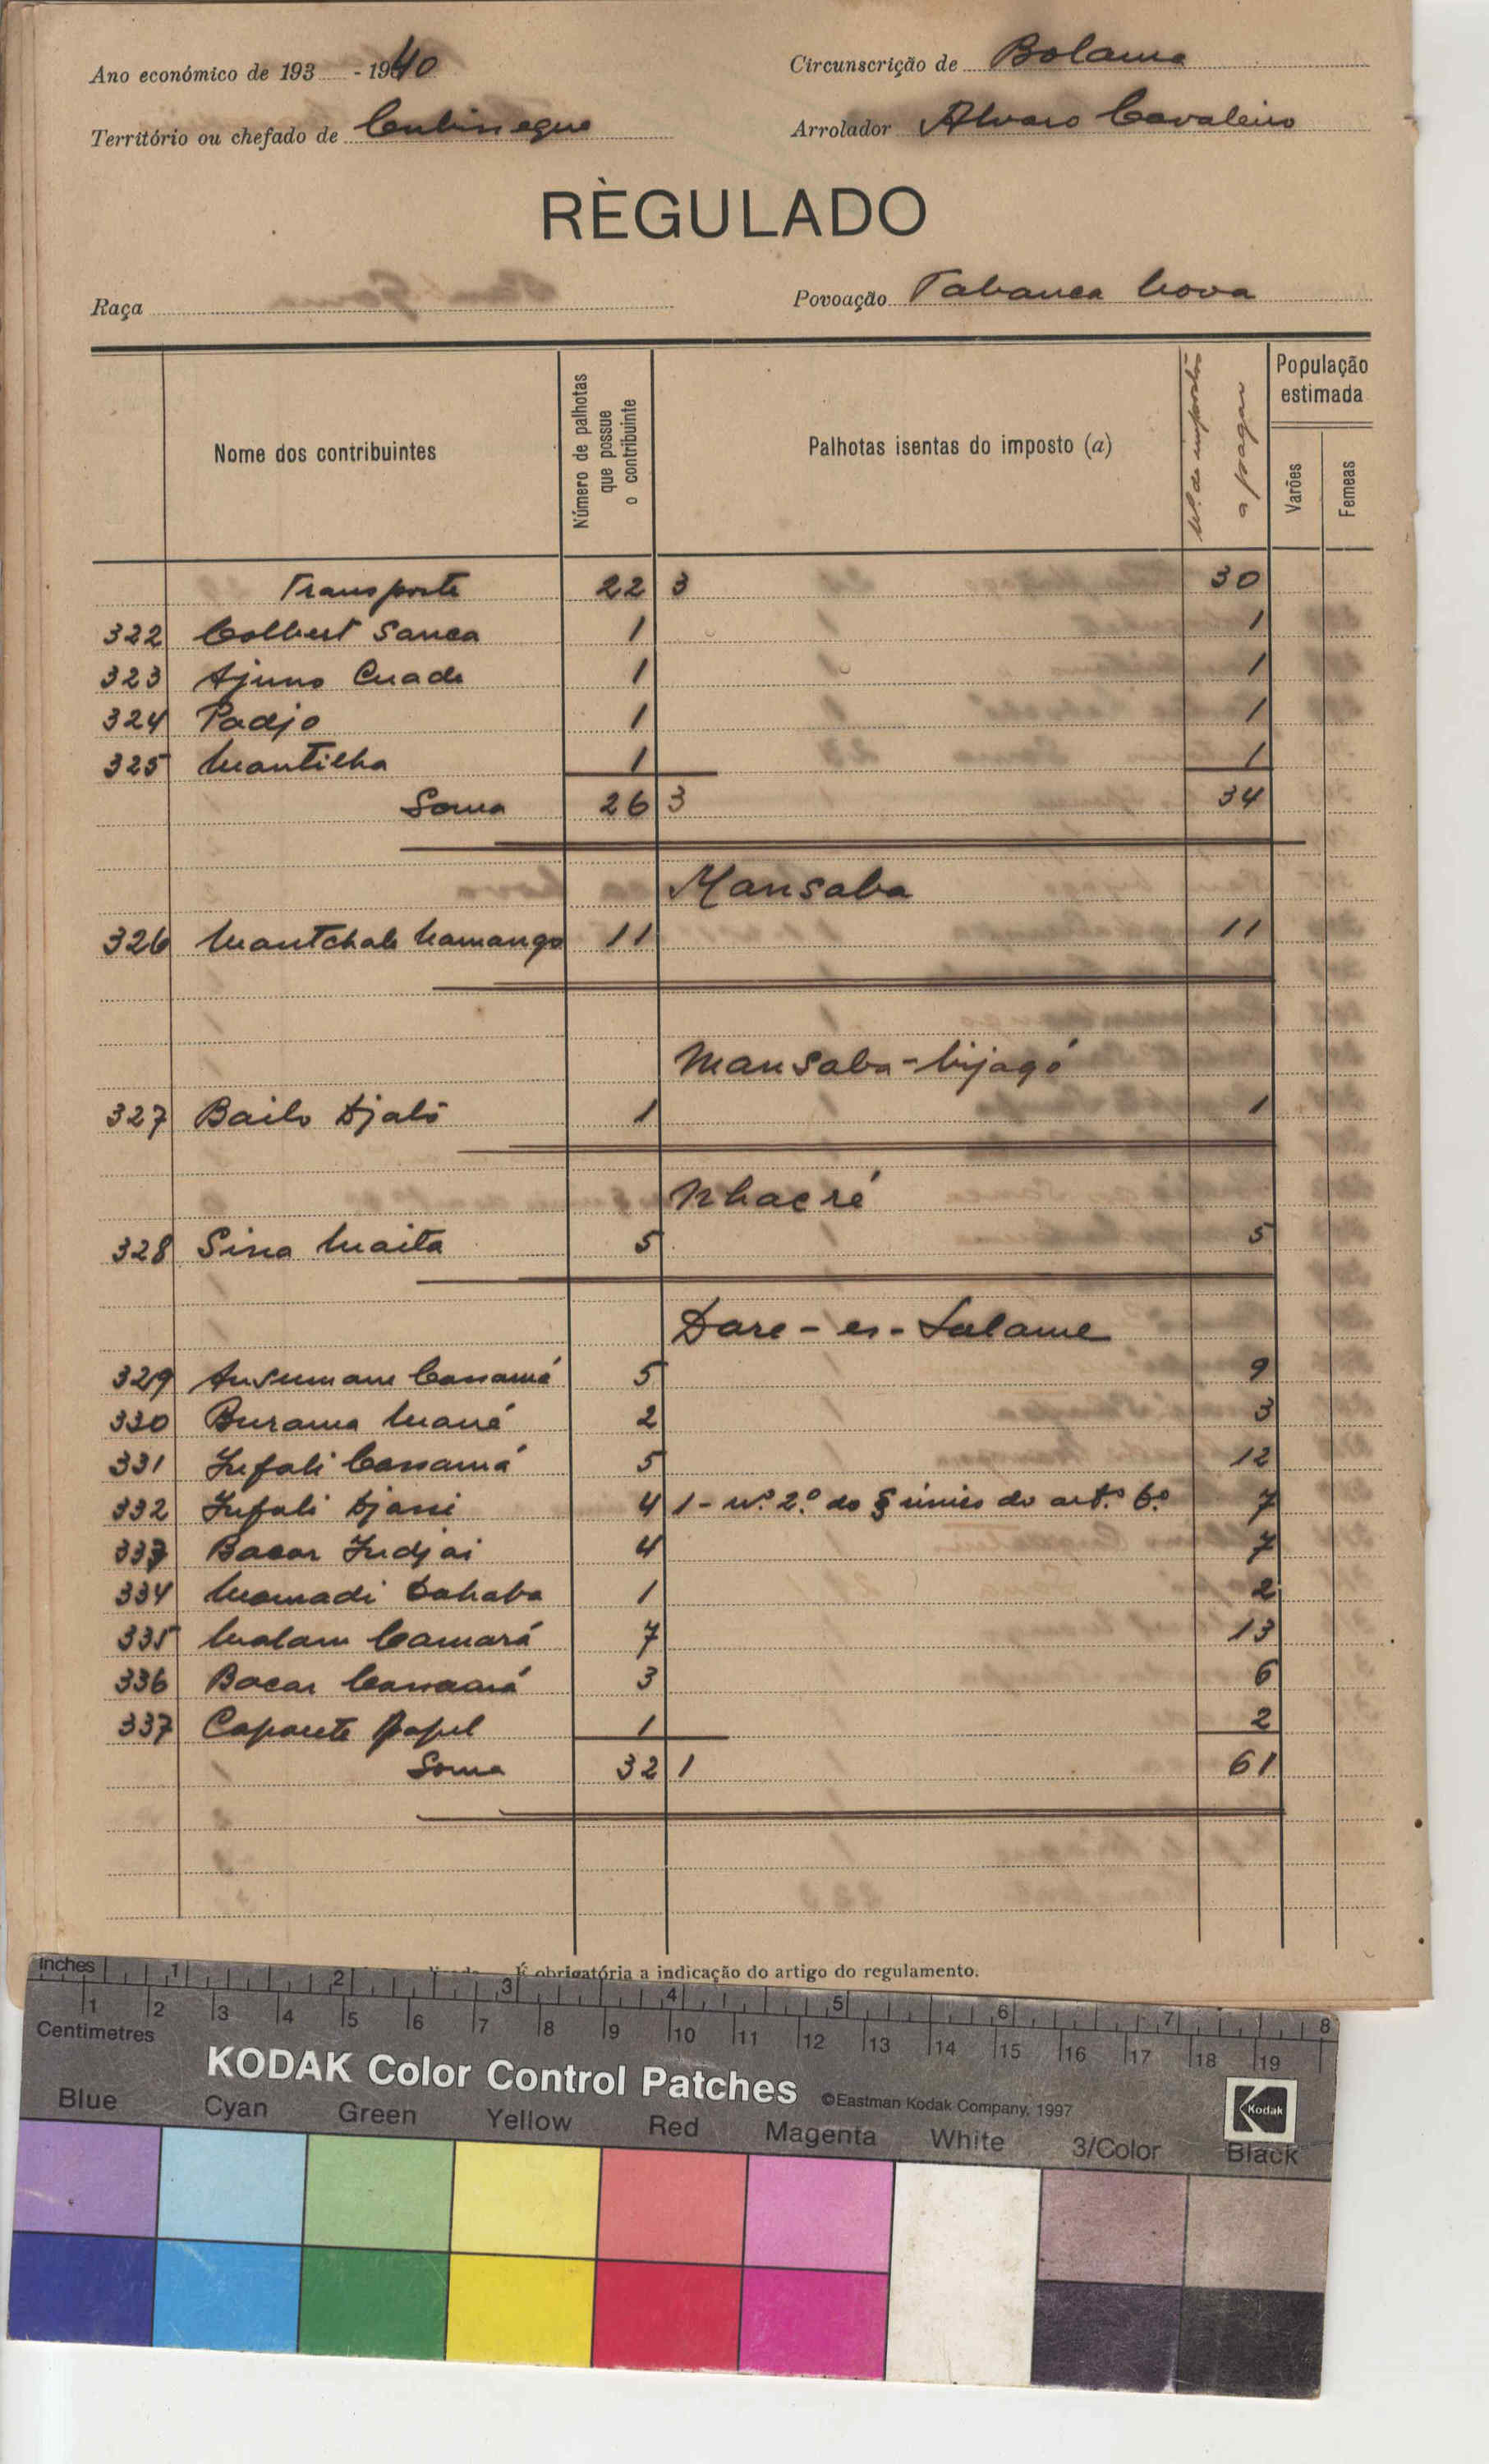 Ano económico de 193 - 1940
Circunscrição de Bolama
Território ou chefado de Cubisseque
Arrolador Alvaro Cavaleiro
RÈGULADO
Raça
Povoação Tabanca Nova
Nome dos contribuintes
Número de palhotas que possue o contribuinte
Palhotas isentas do imposto (a)
Nº. de impostos a pagar
População estimada
Varões
Femeas
Transporte 22 3 30
322 Colbert Sanca 1 1
323 Ajuno Cuade 1 1
324 Padjo 1 1
325 Mantilha 1 1
Soma 26 3 34
Mansaba
326 Mantchale Namango 11 11
Mansaba-bijagó
327 Bailo Djaló 1 1
Nhacré
328 Sina Maita 5 5
Dare-es-Salame
329 Ansumane Camará 5 9
330 Burama Mané 2 3
331 Infali Camará 5 12
332 Infali Djassi 4 1 - nº 2.º do § único do art.º 6.º 7
333 Bacar Indjai 4 7
334 Mamadi Dahaba 1 2
335 Malam Camará 7 13
336 Bacar Camará 3 6
337 Caparete Papel 1 2
Soma 32 1 61
É obrigatória a indicação do artigo do regulamento.
inches 1 2 3 4 5 6 7 8
1 2 3 4 5 6 7 8 9 10 11 12 13 14 15 16 17 18 19
Centimetres
KODAK Color Control Patches ©Eastman Kodak Company, 1997
Kodak
Blue Cyan Green Yellow Red Magenta White 3/Color Black